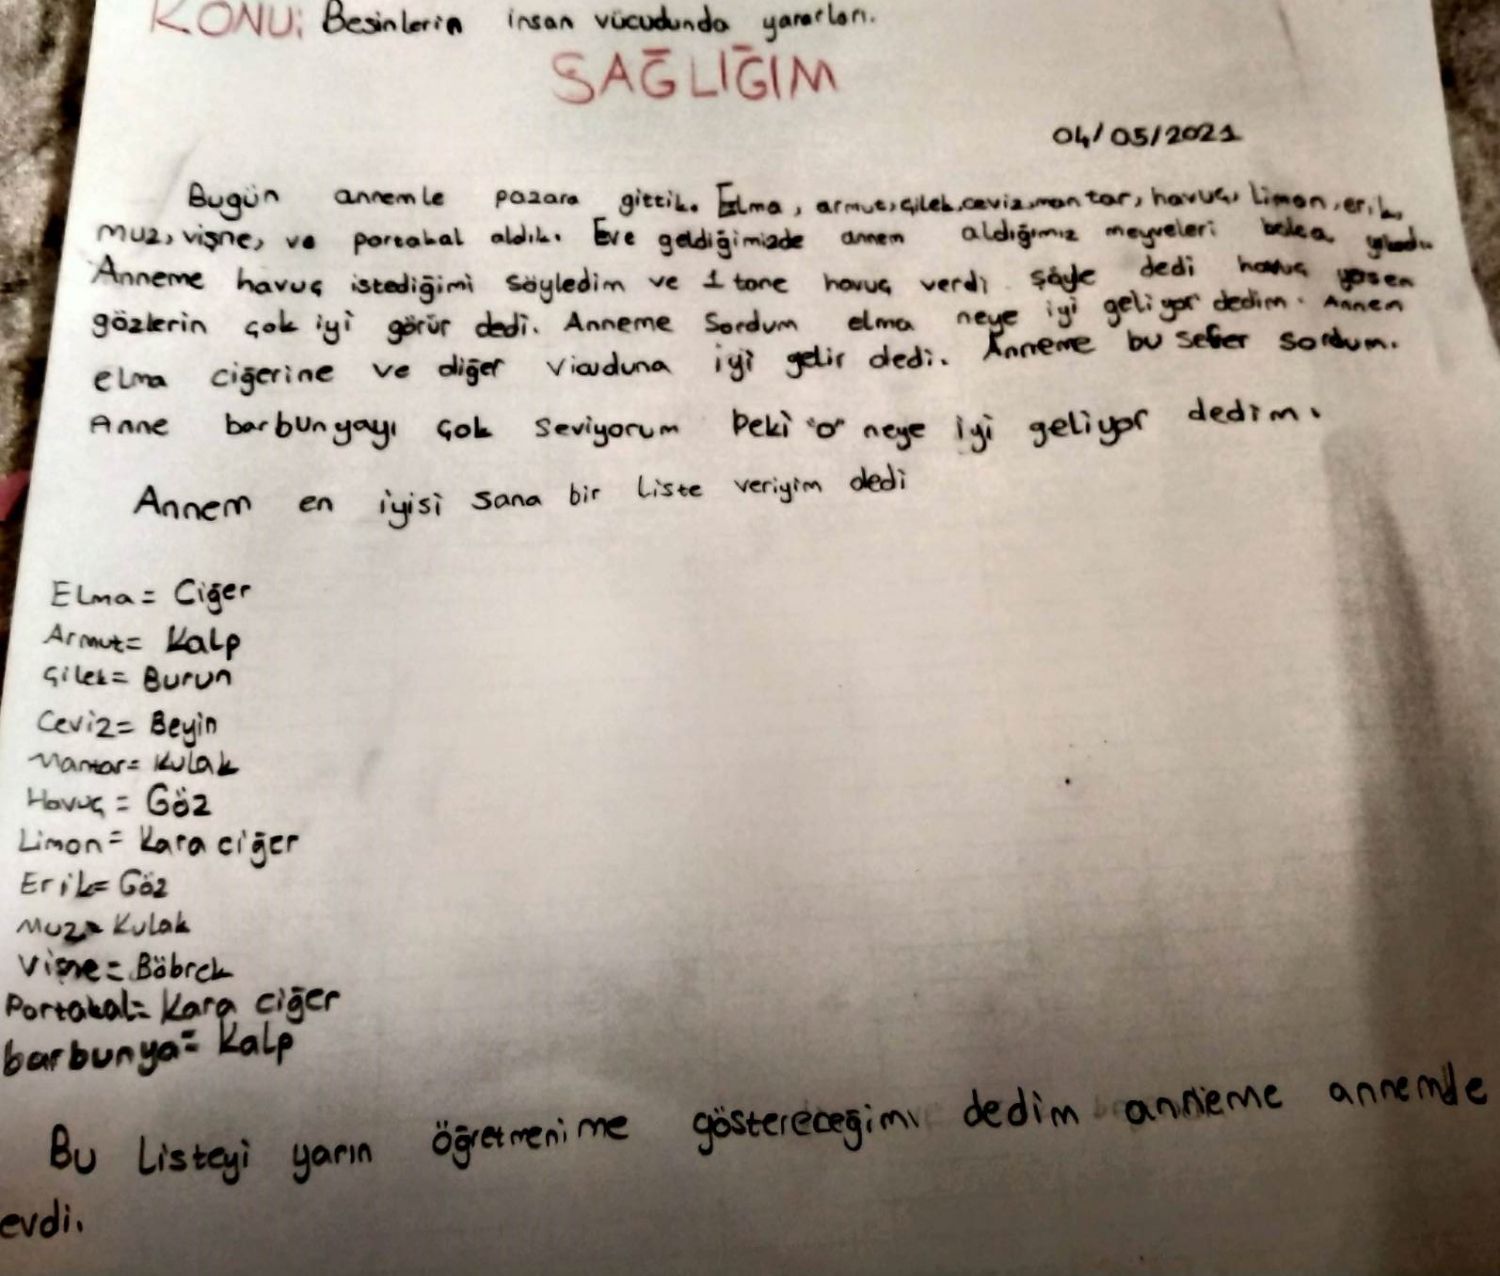 KONU: Besinlerin insan vücudunda yararları.
SAĞLIĞIM
04/05/2021
Bugün annemle pazara gittik. Elma, armut, çilek, ceviz, mantar, havuç, limon, erik,
muz, vişne, ve portakal aldık. Eve geldiğimizde annem aldığımız meyveleri
Anneme havuç istediğimi söyledim ve 1 tane havuç verdi şöyle dedi havuç yersen
gözlerin çok iyi görür dedi. Anneme Sordum elma neye iyi geliyor dedim. Annem
elma ciğerine ve diğer vicuduna iyi gelir dedi. Anneme bu sefer sordum.
Anne barbunyayı çok seviyorum peki "o" neye iyi geliyor dedim.
Annem en iyisi sana bir liste veriyim dedi
Elma = Ciğer
Armut = Kalp
Çilek = Burun
Ceviz = Beyin
Mantar = Kulak
Havuç = Göz
Limon = Kara ciğer
Erik = Göz
Muz = Kulak
Vişne = Böbrek
Portakal = Kara ciğer
barbunya = Kalp
Bu Listeyi yarın öğretmenime göstereceğimi dedim anneme annemde
evdi.